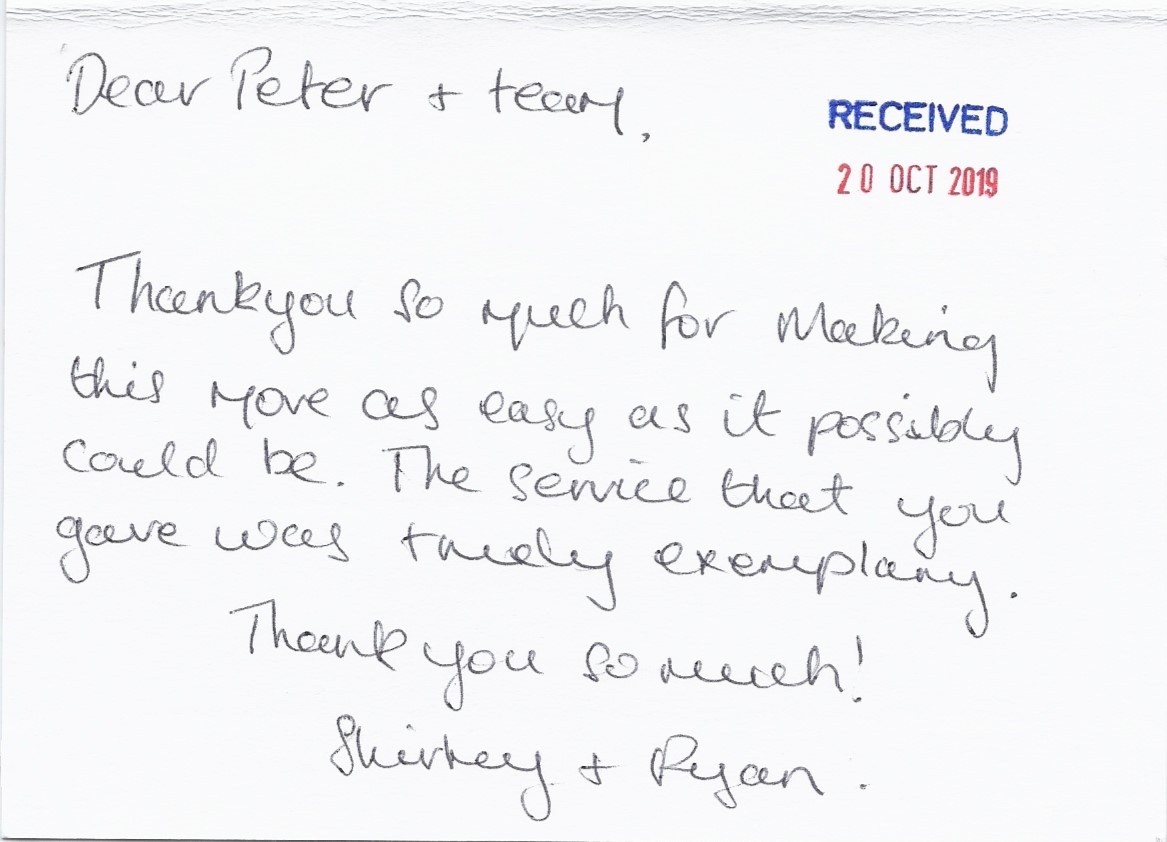 Dear Peter + team,
RECEIVED
20 OCT 2019
Thankyou so much for Making
this move as easy as it possibly
could be. The service that you
gave was truely exemplary.
Thank you so much!
Shirley + Ryan.